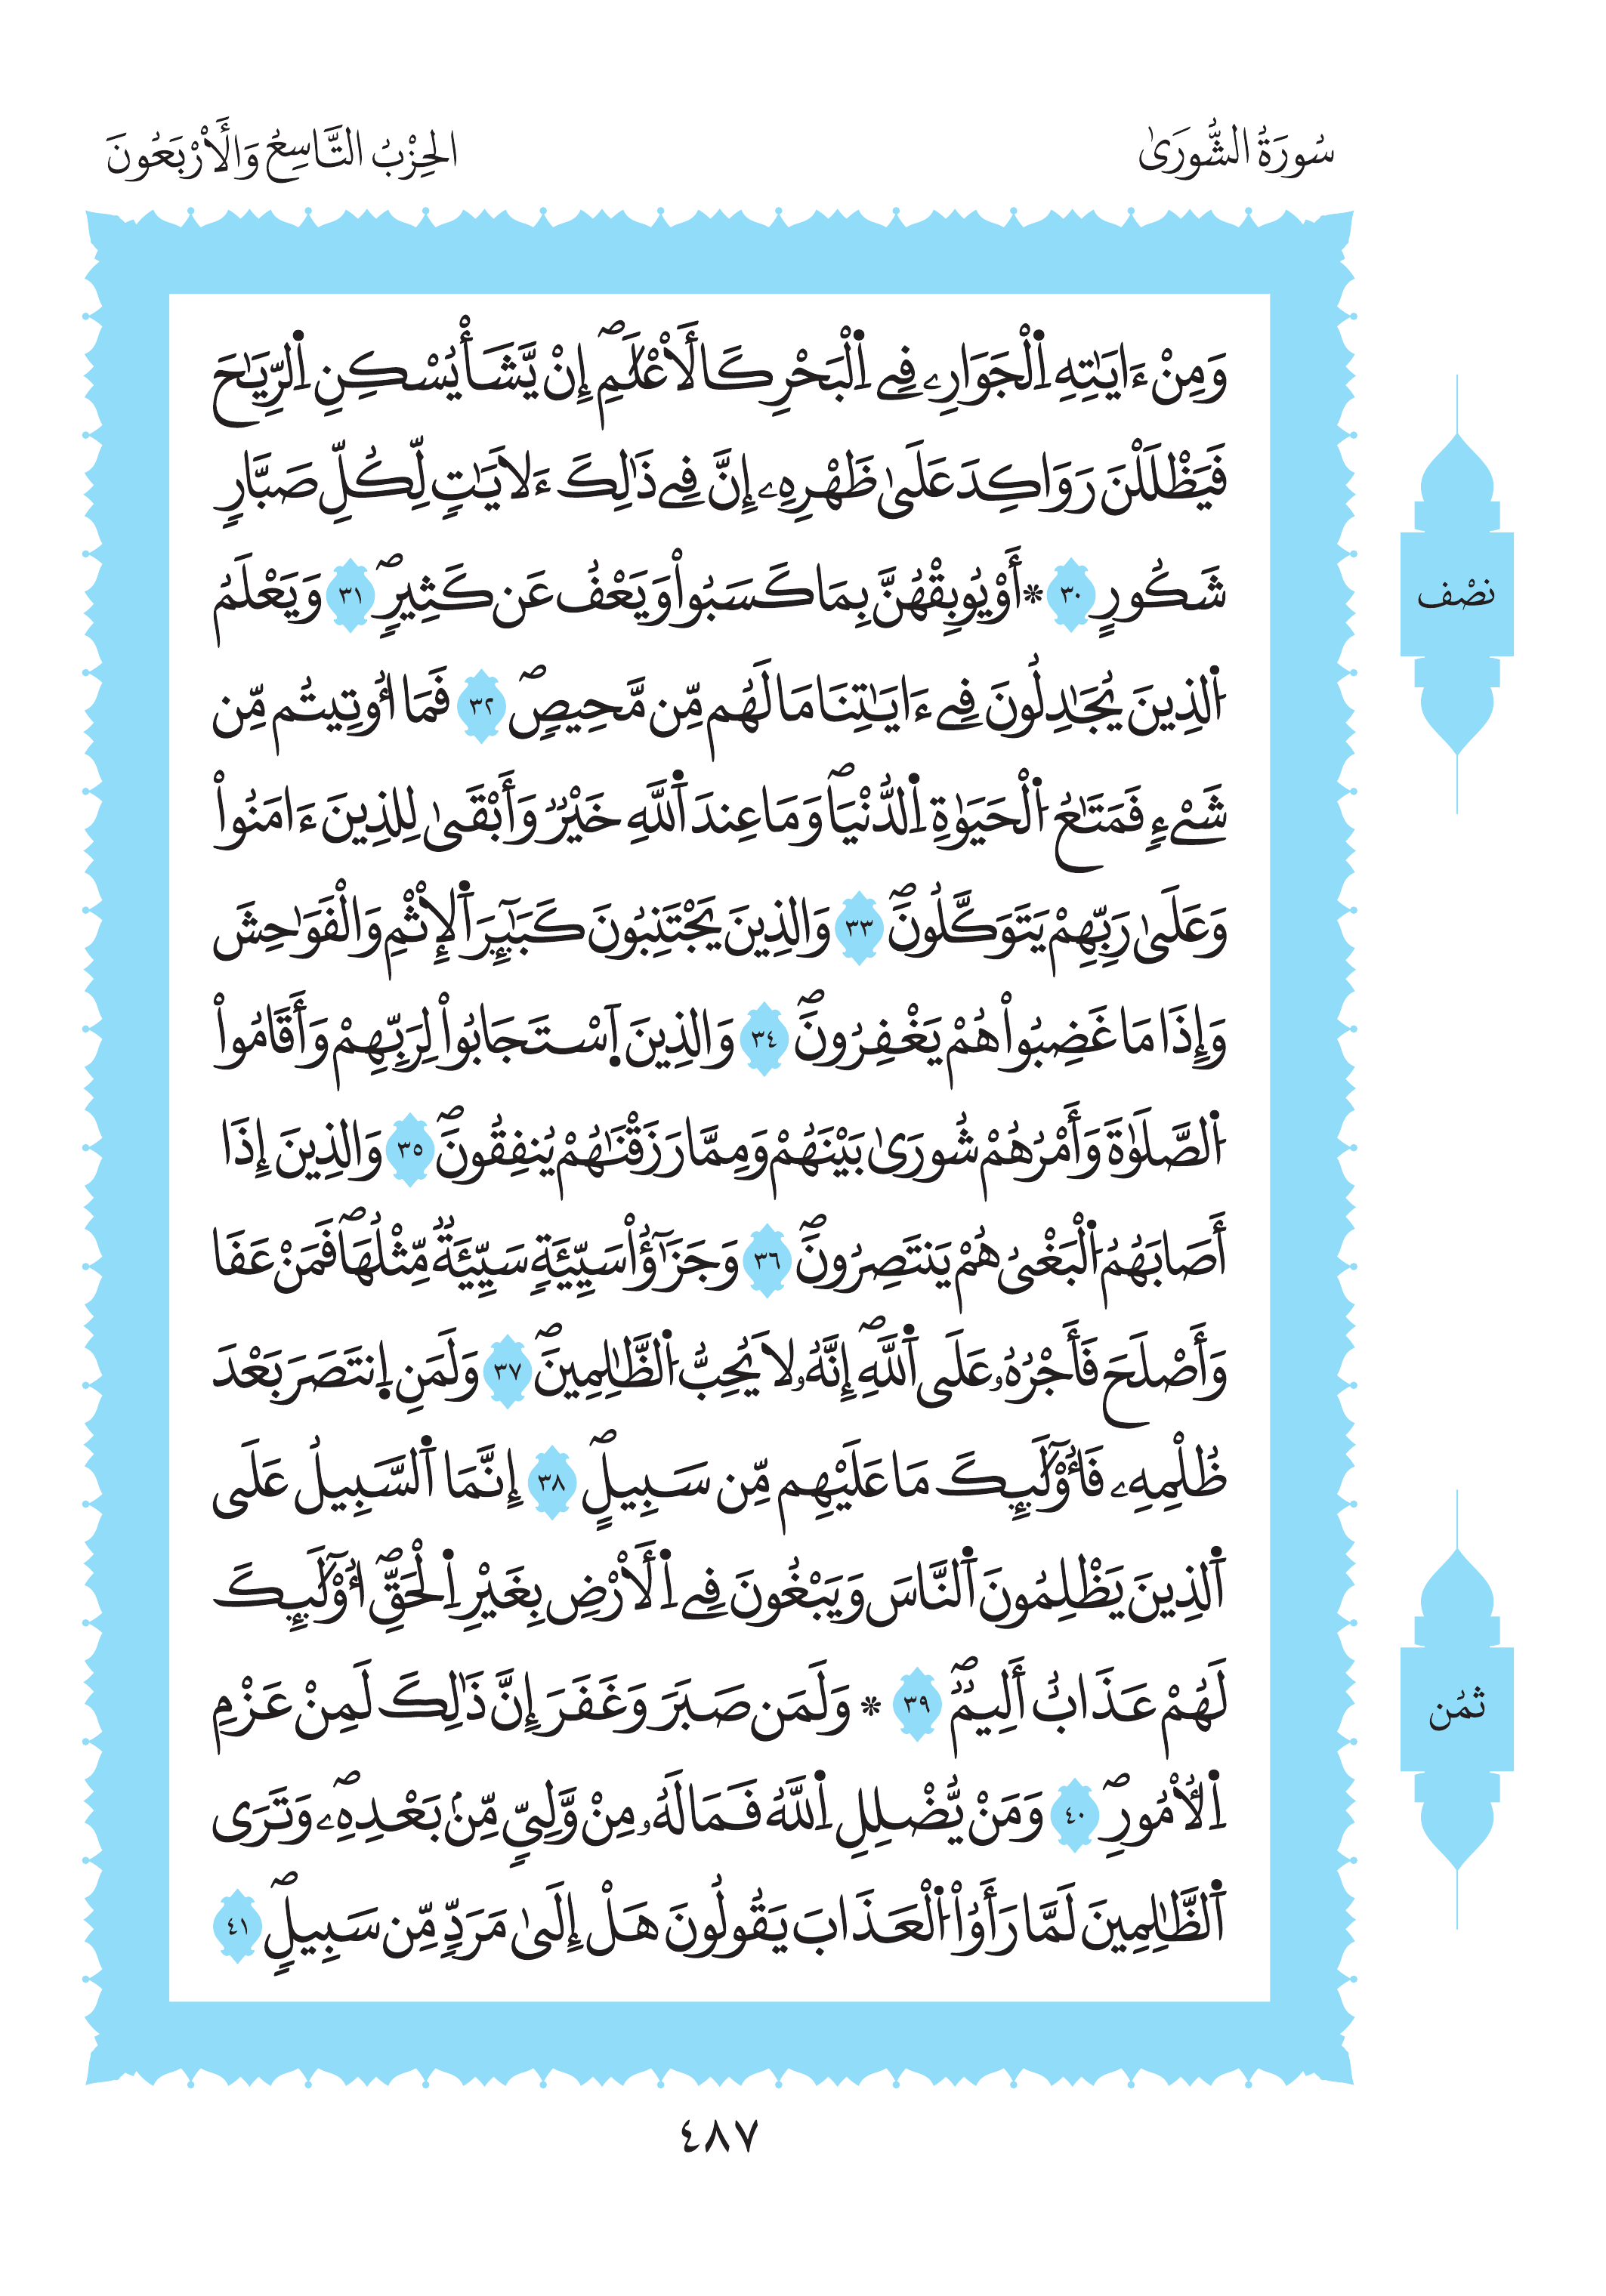 سُورَةُ الشُّورَىٰ
الحِزْبُ التَّاسِعُ وَالأَرْبَعُونَ
وَمِنْ ءَايَٰتِهِ اِ۬لْجَوَارِۦ فِے اِ۬لْبَحْرِ كَالَأعْلَٰمِۖ إِنْ يَّشَأْ يُسْكِنِ اِ۬لرِّيَٰحَ
فَيَظْلَلْنَ رَوَاكِدَ عَلَىٰ ظَهْرِهِۦٓ إِنَّ فِے ذَٰلِكَ ءَلَايَٰتٖ لِّكُلِّ صَبَّارٖ
شَكُورٍ ٣٠ * أَوْ يُوبِقْهُنَّ بِمَا كَسَبُواْ وَيَعْفُ عَن كَثِيرٖۖ ٣١ وَيَعْلَمُ
اُ۬لذِينَ يُجَٰدِلُونَ فِے ءَايَٰتِنَا مَا لَهُم مِّن مَّحِيصٖۖ ٣٢ فَمَا أُوتِيتُم مِّن
شَےْءٖ فَمَتَٰعُ اُ۬لْحَيَوٰةِ اِ۬لدُّنْيَاۖ وَمَا عِندَ اَ۬للَّهِ خَيْرٞ وَأَبْقَىٰ لِلذِينَ ءَامَنُواْ
وَعَلَىٰ رَبِّهِمْ يَتَوَكَّلُونَۖ ٣٣ وَالذِينَ يَجْتَنِبُونَ كَبَٰٓئِرَ اَ۬لِاثْمِ وَالْفَوَٰحِشَ
وَإِذَا مَا غَضِبُواْ هُمْ يَغْفِرُونَۖ ٣٤ وَالذِينَ اَ۪سْتَجَابُواْ لِرَبِّهِمْ وَأَقَامُواْ
اُ۬لصَّلَوٰةَ وَأَمْرُهُمْ شُورَىٰ بَيْنَهُمْ وَمِمَّا رَزَقْنَٰهُمْ يُنفِقُونَۖ ٣٥ وَالذِينَ إِذَا
أَصَابَهُمُ اُ۬لْبَغْىُ هُمْ يَنتَصِرُونَۖ ٣٦ وَجَزَٰٓؤُاْ سَيِّئَةٖ سَيِّئَةٞ مِّثْلُهَاۖ فَمَنْ عَفَا
وَأَصْلَحَ فَأَجْرُهُۥ عَلَى اَ۬للَّهِۖ إِنَّهُۥ لَا يُحِبُّ اُ۬لظَّٰلِمِينَۖ ٣٧ وَلَمَنِ اِ۪نتَصَرَ بَعْدَ
ظُلْمِهِۦ فَأُوْلَٰٓئِكَ مَا عَلَيْهِم مِّن سَبِيلٍۖ ٣٨ إِنَّمَا اَ۬لسَّبِيلُ عَلَى
اَ۬لذِينَ يَظْلِمُونَ اَ۬لنَّاسَ وَيَبْغُونَ فِے اِ۬لَأرْضِ بِغَيْرِ اِ۬لْحَقِّۖ أُوْلَٰٓئِكَ
لَهُمْ عَذَابٌ أَلِيمٞۖ ٣٩ * وَلَمَن صَبَرَ وَغَفَرَ إِنَّ ذَٰلِكَ لَمِنْ عَزْمِ
اِ۬لُأمُورِۖ ٤٠ وَمَنْ يُّضْلِلِ اِ۬للَّهُ فَمَا لَهُۥ مِنْ وَّلِيّٖ مِّنۢ بَعْدِهِۦۖ وَتَرَى
اَ۬لظَّٰلِمِينَ لَمَّا رَأَوُاْ اُ۬لْعَذَابَ يَقُولُونَ هَلْ إِلَىٰ مَرَدّٖ مِّن سَبِيلٖۖ ٤١
نصْف
ثمُن
٤٨٧